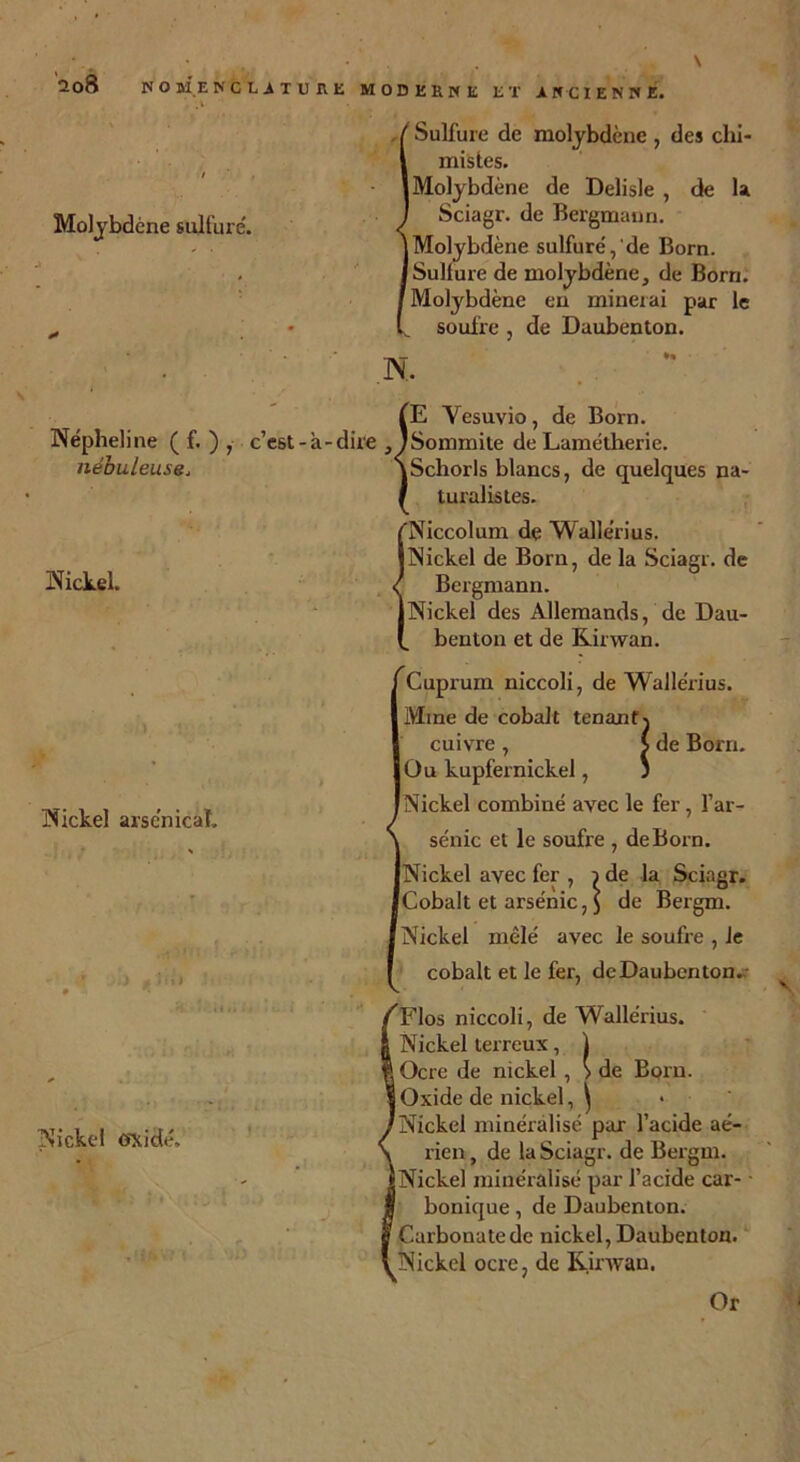 208 NOMENCLATURE MODERNE ET ANCIENNE.
Molybdène sulfuré.
Sulfure de molybdène, des chi-
mistes.
Molybdène de Delisle, de la
Sciagr. de Bergmann.
Molybdène sulfuré, de Born.
Sulfure de molybdène, de Born.
Molybdène en minerai par le
soufre, de Daubenton.
N.
Népheline (f.), c'est-à-dire,
nébuleuse.
E Vesuvio, de Born.
Sommite de Lamétherie.
Schorls blancs, de quelques na-
turalistes.
Nickel.
Niccolum de Wallérius.
Nickel de Born, de la Sciagr. de
Bergmann.
Nickel des Allemands, de Dau-
benton et de Kirwan.
Nickel arsénical.
Cuprum niccoli, de Wallérius.
Mine de cobalt tenant
cuivre, } de Born.
Ou kupfernickel,
Nickel combiné avec le fer, l'ar-
sénic et le soufre, de Born.
Nickel avec fer, } de la Sciagr.
Cobalt et arsénic, } de Bergm.
Nickel mêlé avec le soufre, le
cobalt et le fer, de Daubenton.
Nickel oxidé.
Flos niccoli, de Wallérius.
Nickel terreux,
Ocre de nickel, } de Born.
Oxide de nickel,
Nickel minéralisé par l'acide aé-
rien, de la Sciagr. de Bergm.
Nickel minéralisé par l'acide car-
bonique, de Daubenton.
Carbonate de nickel, Daubenton.
Nickel ocre, de Kirwan.
Or